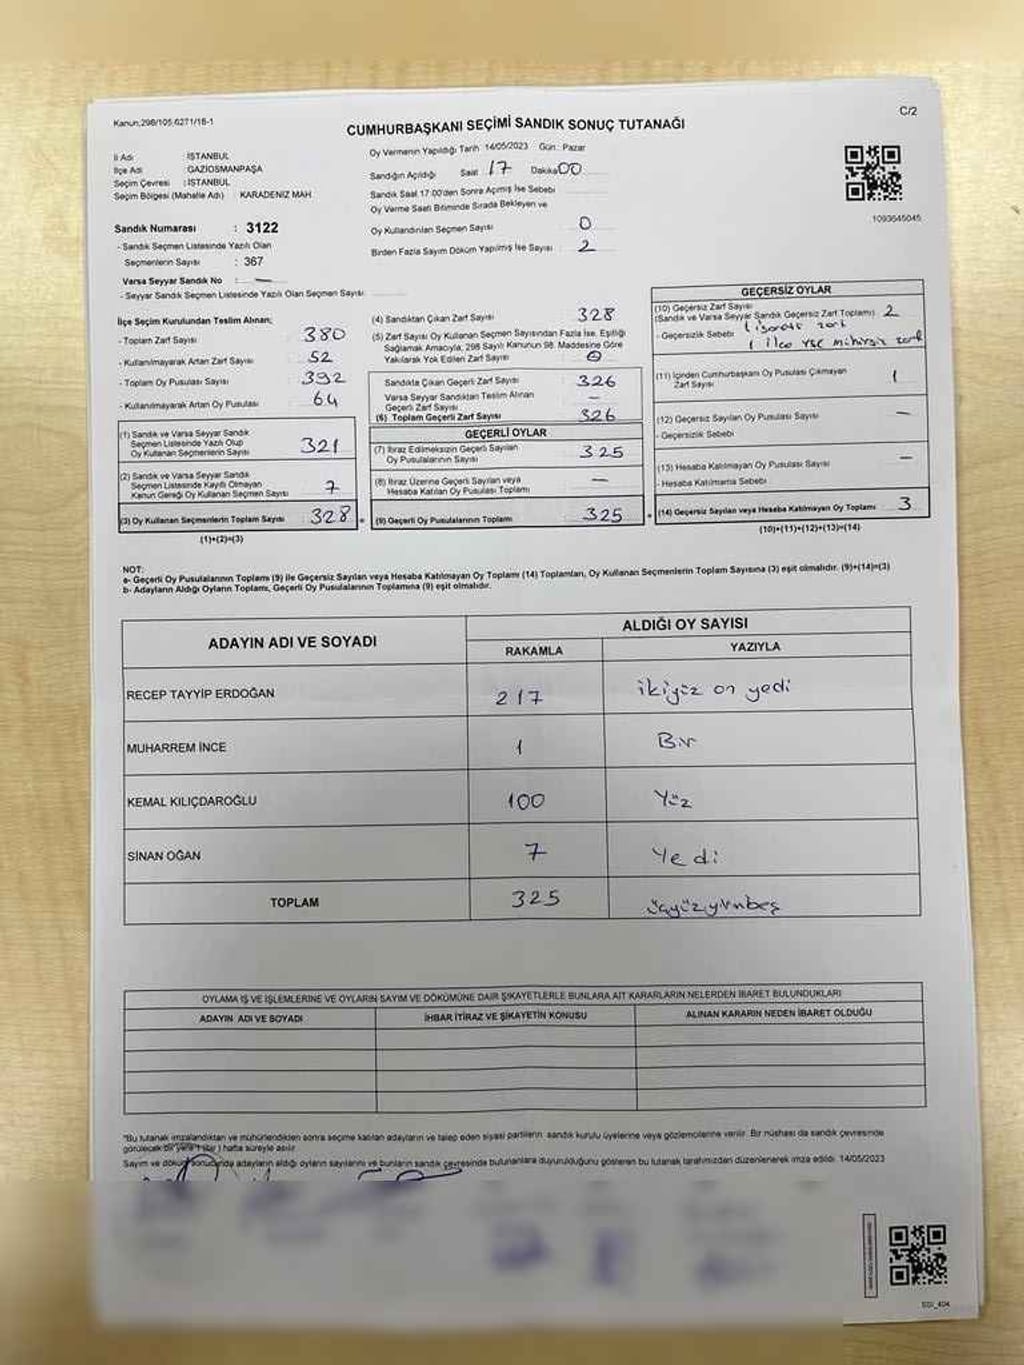 Kanun;298/105,6271/16-1
C/2
CUMHURBAŞKANI SEÇİMİ SANDIK SONUÇ TUTANAĞI
İl Adı : İSTANBUL
İlçe Adı : GAZİOSMANPAŞA
Seçim Çevresi : İSTANBUL
Seçim Bölgesi (Mahalle Adı) : KARADENİZ MAH
Sandık Numarası : 3122
- Sandık Seçmen Listesinde Yazılı Olan
Seçmenlerin Sayısı : 367
Varsa Seyyar Sandık No : —
- Seyyar Sandık Seçmen Listesinde Yazılı Olan Seçmen Sayısı:
Oy Vermenin Yapıldığı Tarih 14/05/2023 Gün : Pazar
Sandığın Açıldığı Saat 17 Dakika 00
Sandık Saat 17:00'den Sonra Açılmış İse Sebebi
Oy Verme Saati Bitiminde Sırada Bekleyen ve
Oy Kullandırılan Seçmen Sayısı 0
Birden Fazla Sayım Döküm Yapılmış İse Sayısı 2
1093645045
İlçe Seçim Kurulundan Teslim Alınan;
- Toplam Zarf Sayısı : 380
- Kullanılmayarak Artan Zarf Sayısı : 52
- Toplam Oy Pusulası Sayısı : 392
- Kullanılmayarak Artan Oy Pusulası : 64
(1) Sandık ve Varsa Seyyar Sandık
Seçmen Listesinde Yazılı Olup
Oy Kullanan Seçmenlerin Sayısı 321
(2) Sandık ve Varsa Seyyar Sandık
Seçmen Listesinde Kayıtlı Olmayan
Kanun Gereği Oy Kullanan Seçmen Sayısı 7
(3) Oy Kullanan Seçmenlerin Toplam Sayısı 328
(1)+(2)=(3)
(4) Sandıktan Çıkan Zarf Sayısı 328
(5) Zarf Sayısı Oy Kullanan Seçmen Sayısından Fazla İse, Eşitliği
Sağlamak Amacıyla, 298 Sayılı Kanunun 98. Maddesine Göre
Yakılarak Yok Edilen Zarf Sayısı 0
Sandıkta Çıkan Geçerli Zarf Sayısı 326
Varsa Seyyar Sandıktan Teslim Alınan
Geçerli Zarf Sayısı —
(6) Toplam Geçerli Zarf Sayısı 326
GEÇERLİ OYLAR
(7) İtiraz Edilmeksizin Geçerli Sayılan
Oy Pusulalarının Sayısı 325
(8) İtiraz Üzerine Geçerli Sayılan veya
Hesaba Katılan Oy Pusulası Toplamı —
(9) Geçerli Oy Pusulalarının Toplamı 325
GEÇERSİZ OYLAR
(10) Geçersiz Zarf Sayısı
(Sandık ve Varsa Seyyar Sandık Geçersiz Zarf Toplamı) 2
- Geçersizlik Sebebi : 1 işaretli zarf
1 ilçe mühürsüz zarf
(11) İçinden Cumhurbaşkanı Oy Pusulası Çıkmayan
Zarf Sayısı 1
(12) Geçersiz Sayılan Oy Pusulası Sayısı —
- Geçersizlik Sebebi
(13) Hesaba Katılmayan Oy Pusulası Sayısı —
- Hesaba Katılmama Sebebi
(14) Geçersiz Sayılan veya Hesaba Katılmayan Oy Toplamı 3
(10)+(11)+(12)+(13)=(14)
NOT:
a- Geçerli Oy Pusulalarının Toplamı (9) ile Geçersiz Sayılan veya Hesaba Katılmayan Oy Toplamı (14) Toplamları, Oy Kullanan Seçmenlerin Toplam Sayısına (3) eşit olmalıdır. (9)+(14)=(3)
b- Adayların Aldığı Oyların Toplamı, Geçerli Oy Pusulalarının Toplamına (9) eşit olmalıdır.
ADAYIN ADI VE SOYADI ALDIĞI OY SAYISI
RAKAMLA YAZIYLA
RECEP TAYYİP ERDOĞAN 217 ikiyüz on yedi
MUHARREM İNCE 1 Bir
KEMAL KILIÇDAROĞLU 100 Yüz
SİNAN OĞAN 7 Yedi
TOPLAM 325 üçyüzyirmibeş
OYLAMA İŞ VE İŞLEMLERİNE VE OYLARIN SAYIM VE DÖKÜMÜNE DAİR ŞİKAYETLERLE BUNLARA AİT KARARLARIN NELERDEN İBARET BULUNDUKLARI
ADAYIN ADI VE SOYADI İHBAR İTİRAZ VE ŞİKAYETİN KONUSU ALINAN KARARIN NEDEN İBARET OLDUĞU
*Bu tutanak imzalandıktan ve mühürlendikten sonra seçime katılan adayların ve talep eden siyasi partilerin sandık kurulu üyelerine veya gözlemcilerine verilir. Bir nüshası da sandık çevresinde
görülecek bir yere 1 (bir) hafta süreyle asılır
Sayım ve döküm sonucunda adayların aldığı oyların sayılarını ve bunların sandık çevresinde bulunanlara duyurulduğunu gösteren bu tutanak tarafımızdan düzenlenerek imza edildi. 14/05/2023